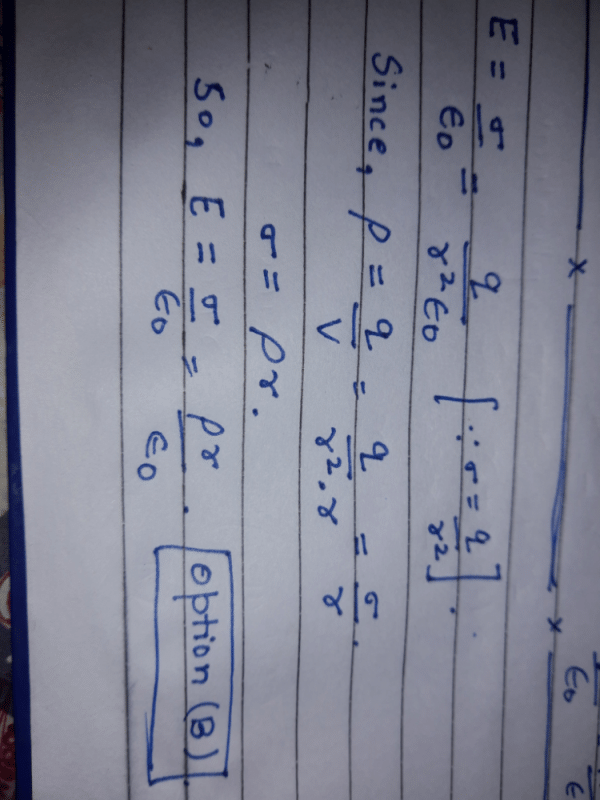 ε₀ ε
× ×
E = σ/ε₀ = q/r²ε₀ [∵ σ = q/r²].
Since, ρ = q/V = q/r².r = σ/r.
σ = ρr.
So, E = σ/ε₀ = ρr/ε₀. option (B)